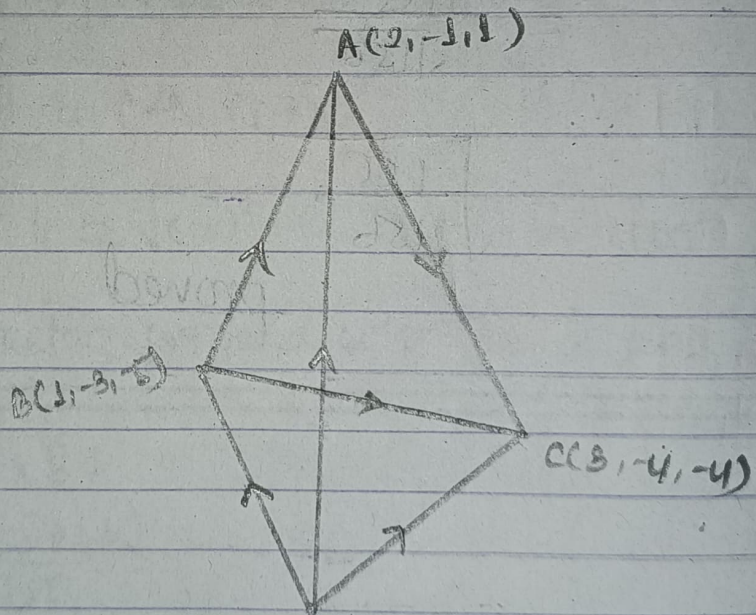 A(2,-1,1)
B(1,-3,-5)
C(3,-4,-4)